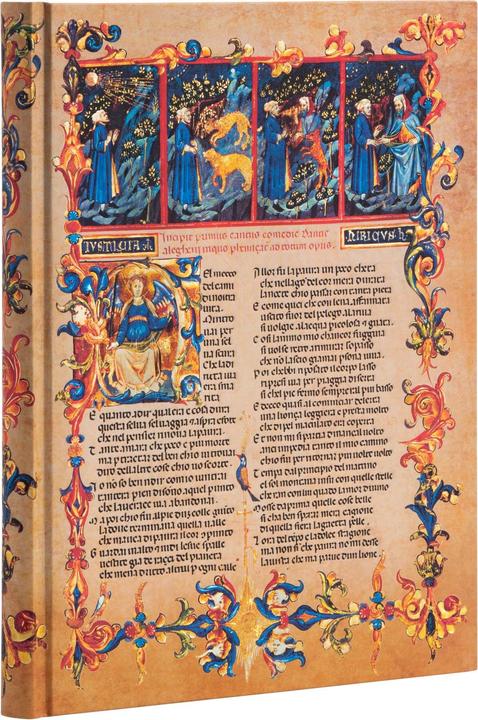 IVSTICIA
Incipit primus cantus comedie Dantis
alegherij in quo ad totum opus.
El meço
del cami
di nostra
uita.
Mi ritro
uai per
una sel
ua scura
che la di
ritta uia
era sma
rita
E quanto adir qual era e cosa dura
questa selua seluaggia e aspra e forte
che nel pensier rinoua la paura
T ant e amara che poco e piu morte
ma per tractar del ben chio ui trouai
diro dellaltre cose chio uo scorte
I o no so ben ridir comio uintrai
tantera pien disono aquel punto
che la uerace uia abandonai.
M a poi chio fui al pie dun colle giunto
la doue terminaua quella ualle
che mauea di paura il cor compunto
G uardai inalto e uidi le sue spalle
uestite gia de raçi del pianeta
che mena dricto altrui per ogni calle
A llor fu la paura un poco cheta
che nellago del cor mera durata
la nocte chio passai con tanta pieta
E come quei che con lena affannata
uscito fuor del pelago alla riua
si uolge alacqua pericolosa e guata.
C osi lanimo mio chancor fuggiua
si uolse retro a rimirar lo passo
che no lascio giamai persona uiua.
P oi chebbi riposato il corpo lasso
ripresi uia per piaggia diserta
si chel pie fermo sempre era piu basso
E t ecco quasi al cominciar dellerta
una lonça leggiera e presta molto
che di pel maculato era coperta
E non mi si partia dinançi al uolto
anci impedia tanto il mio camino
chio fui per ritornar piu uolte uolto
T empo dal principio del matino
el sol montaua insu con quelle stelle
che eran con lui quando lamor diuino
M osse da prima quelle cose belle
si cha ben sperar mera cagione
di quella fiera la gaetta pelle.
L ora del tempo e la dolce stagione
ma non si che paura no mi desse
la uista che mi parue dun lione.